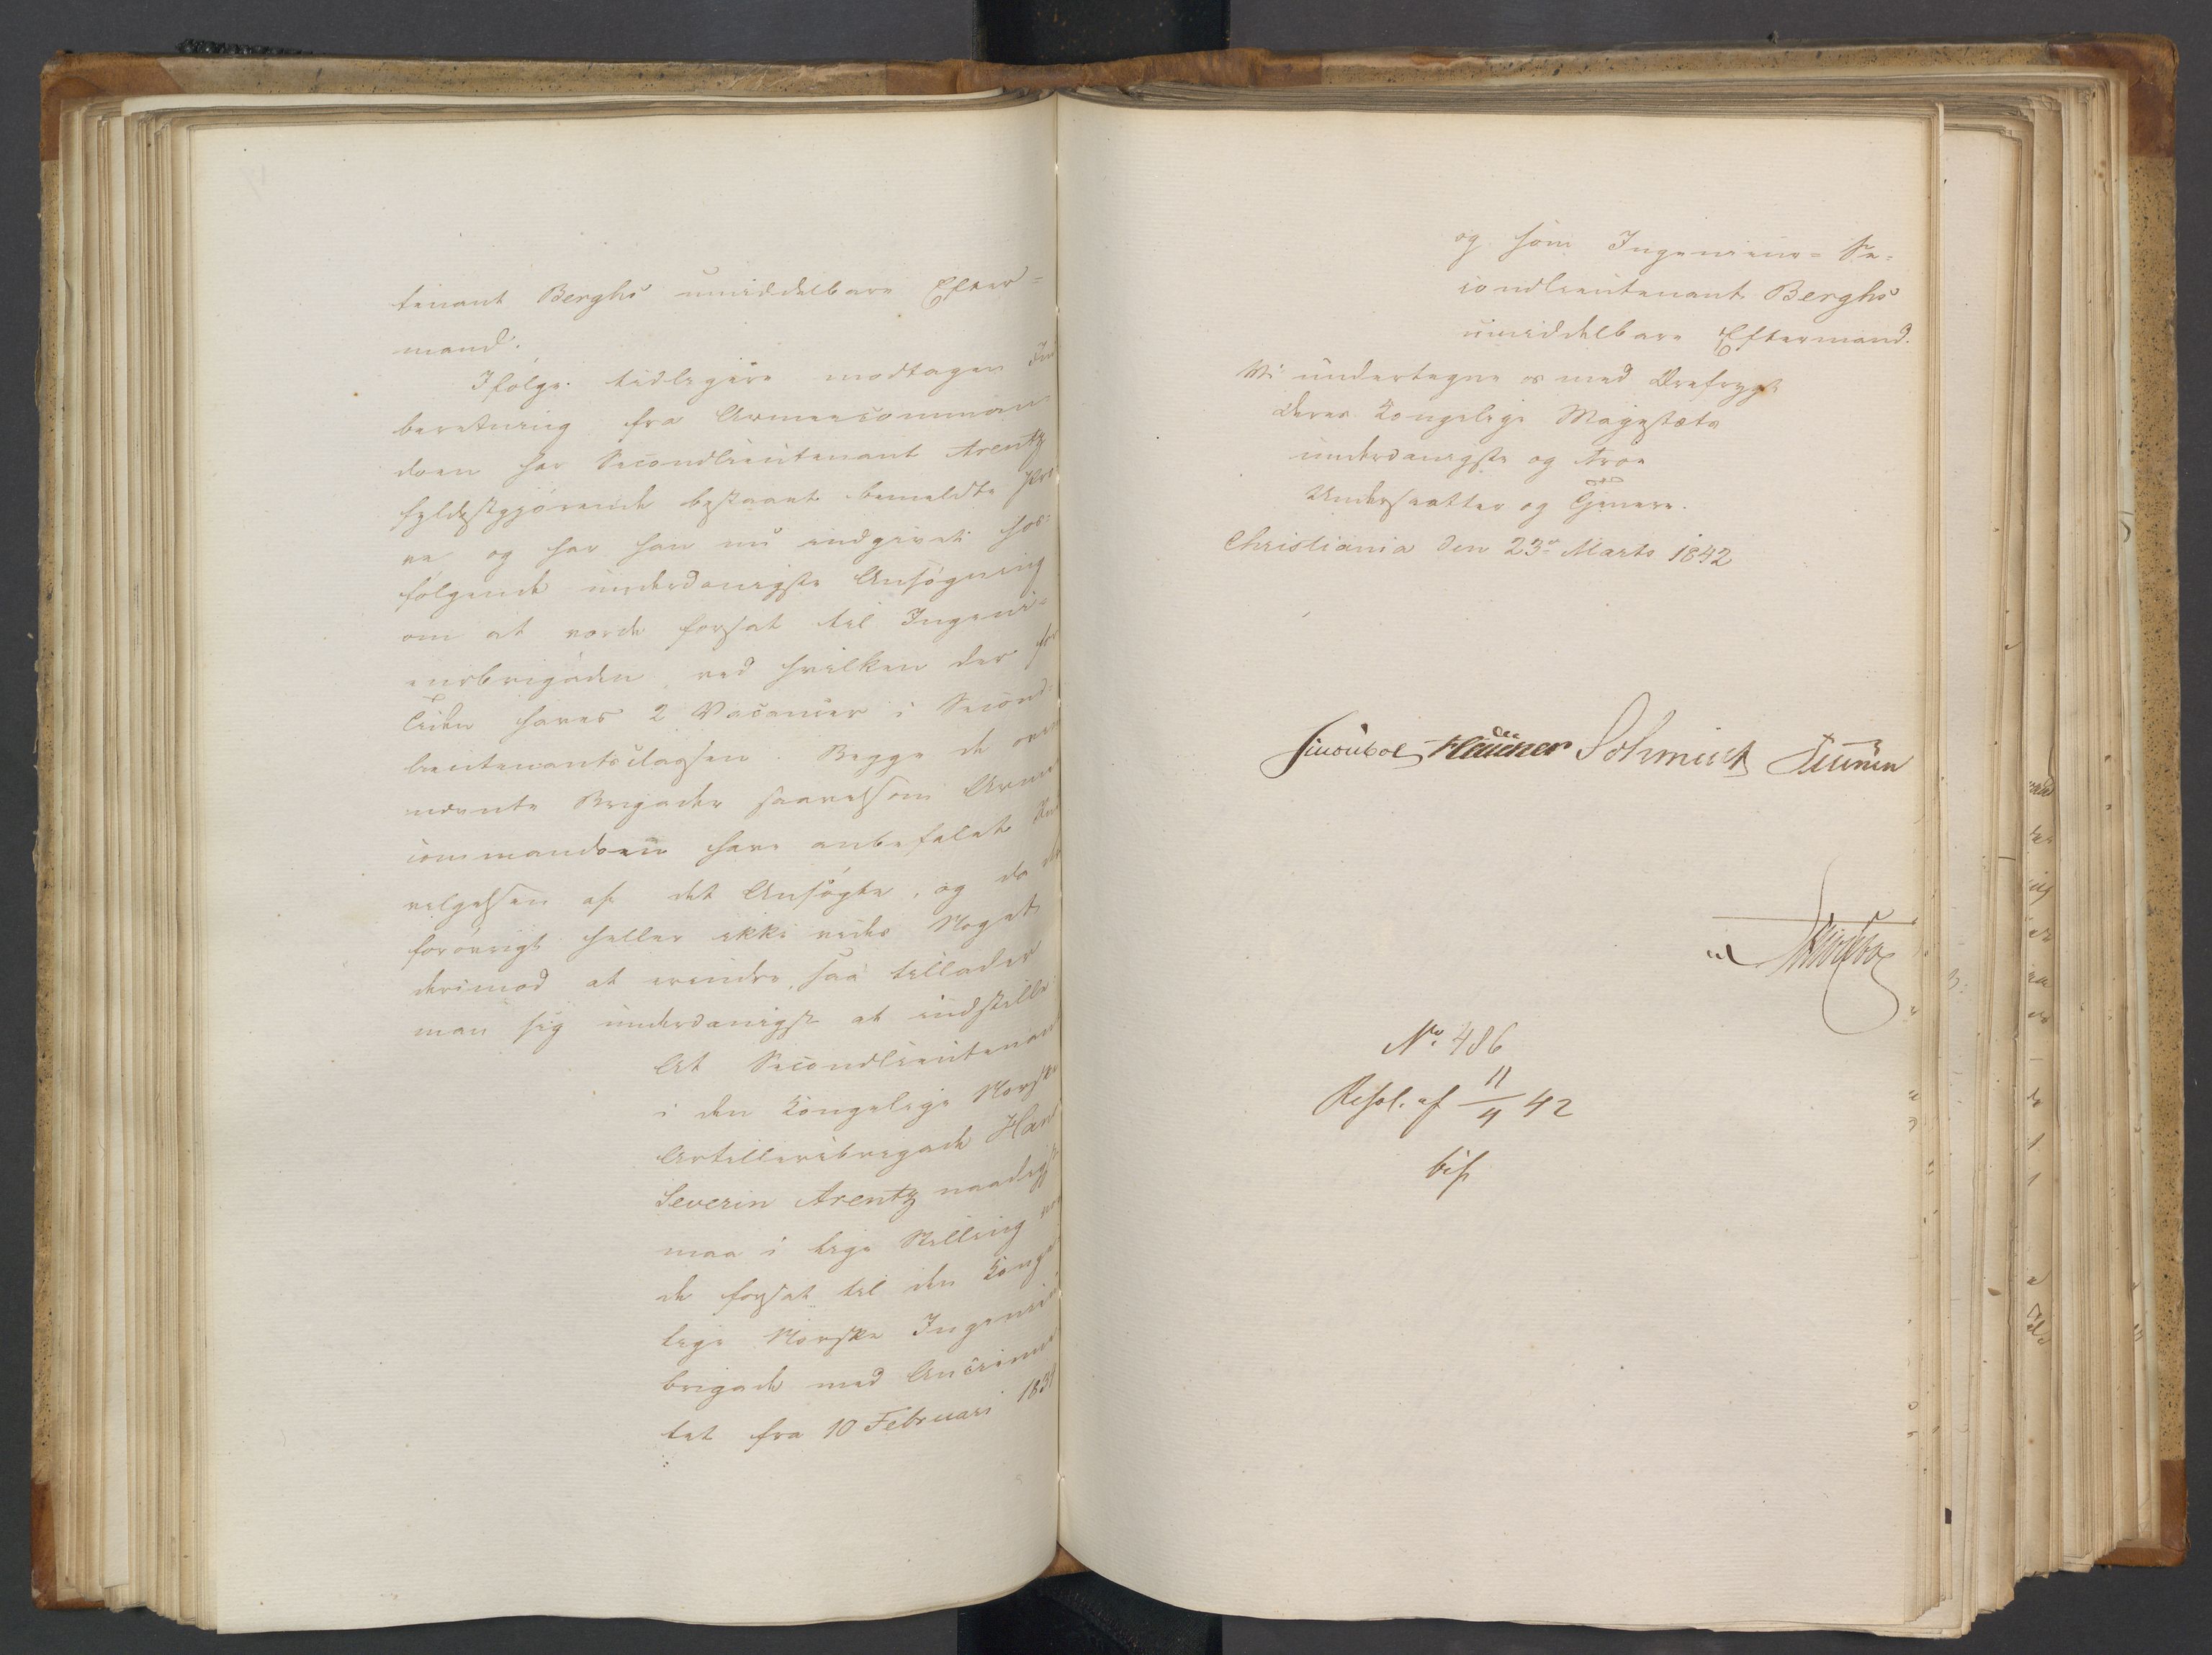 tenant Berghs umiddelbare Efter=
mand.
Ifølge tidligere modtagen Ind
beretning fra Armeecomman
doen har Secondlieutenant Arentz
fyldestgjørende bestaaet bemeldte Prø
ve og har han nu indgivet hos=
følgende underdanigste Ansøgning
om at vorde forsat til Ingeni=
eurbrigaden, ved hvilken der for
Tiden haves 2 Vacancer i Second=
lieutenantsclassen. Begge de oven
nævnte Brigader saavelsom Armee
commandoen have anbefalet Be
vilgelsen af det Ansøgte, og da der
forøvrigt heller ikke vides Noget
derimod at erindre, saa tillader
man sig underdanigst at indstille
At Secondlieutenant
i den Kongelige Norske
Artilleribrigade Hans
Severin Arentz naadigst
maa i lige Stilling vor
de forsat til den Konge
lige Norske Ingenieur
brigade med Anciennе
tet fra 10 Februari 183
og som Ingenieur=Se=
condlieutenant Berghs
umiddelbare Eftermand.
Vi undertegne os med Ærefrygt
Deres Kongelige Majestæts
underdanigste og troe
Undersaatter og Tjenere.
Christiania den 23de Marts 1842
Schmidt
No 486
Resol. af 11/4 42
bif